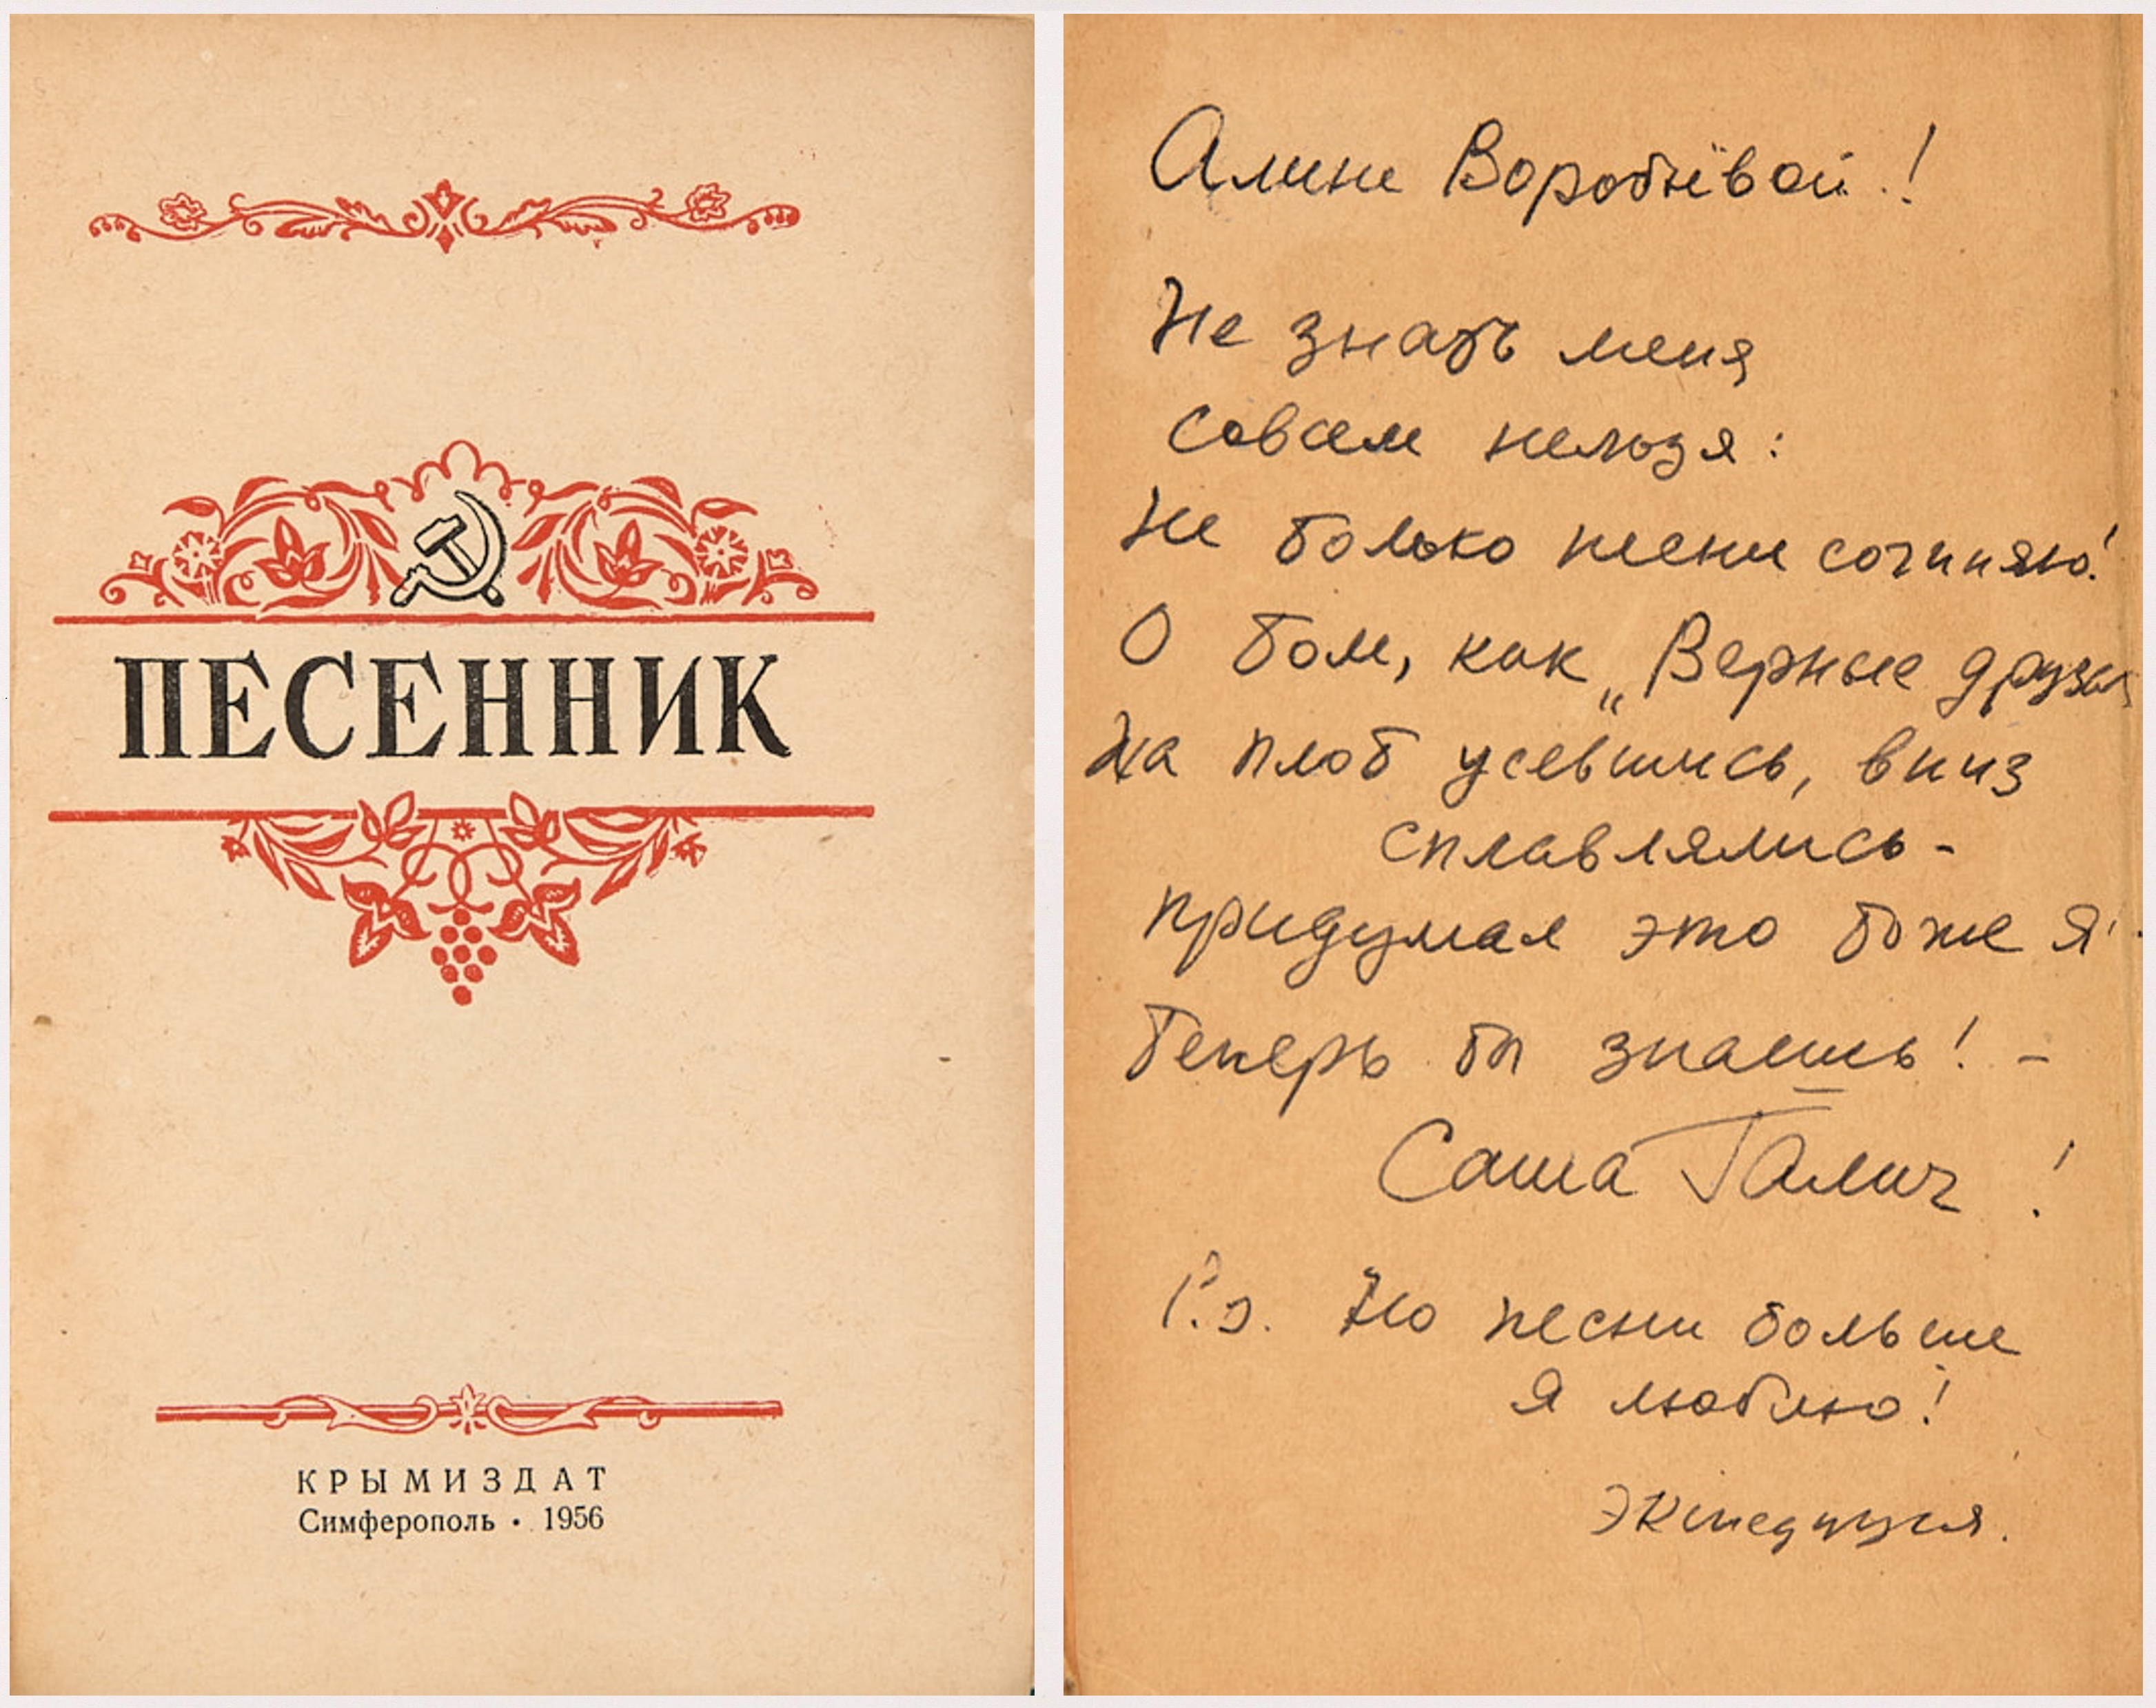 ПЕСЕННИК
КРЫМИЗДАТ
Симферополь • 1956
Алине Воробьёвой!
Не знать меня
совсем нельзя:
Не только песни сочиняю!
О том, как „Верные друзья
На плот усевшись, вниз
сплавлялись-
придумал это тоже я!
Теперь ты знаешь! -
Саша Галич!
P.s. Но песни больше
я люблю!